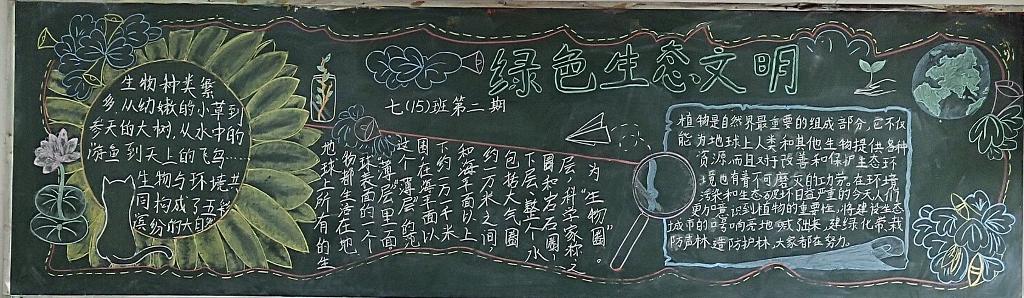 绿色生态文明
七(15)班第二期
生物种类繁
多,从幼嫩的小草到
参天的大树,从水中的
游鱼到天上的飞鸟……
生物与环境共
同构成了五彩
缤纷的大自
地球上所有的生
物都生活在地
球表面的一个
“薄层”里面,
这个“薄层”的范
围在海平面以
下约一万一千米
和海平面以上
约一万米之间,
包括大气圈
下层,整个水
圈和岩石圈
层,科学家称之
为“生物圈”。
植物是自然界最重要的组成部分,它不仅
能为地球上人类和其他生物提供各种
资源,而且对于改善和保护生态环
境也有着不可磨灭的功劳。在环境
污染和生态破坏日益严重的今天,人们
更加意识到植物的重要性,将建设生态
城市的口号响亮地喊出来,建绿化带,栽
防声林,造防护林,大家都在努力。